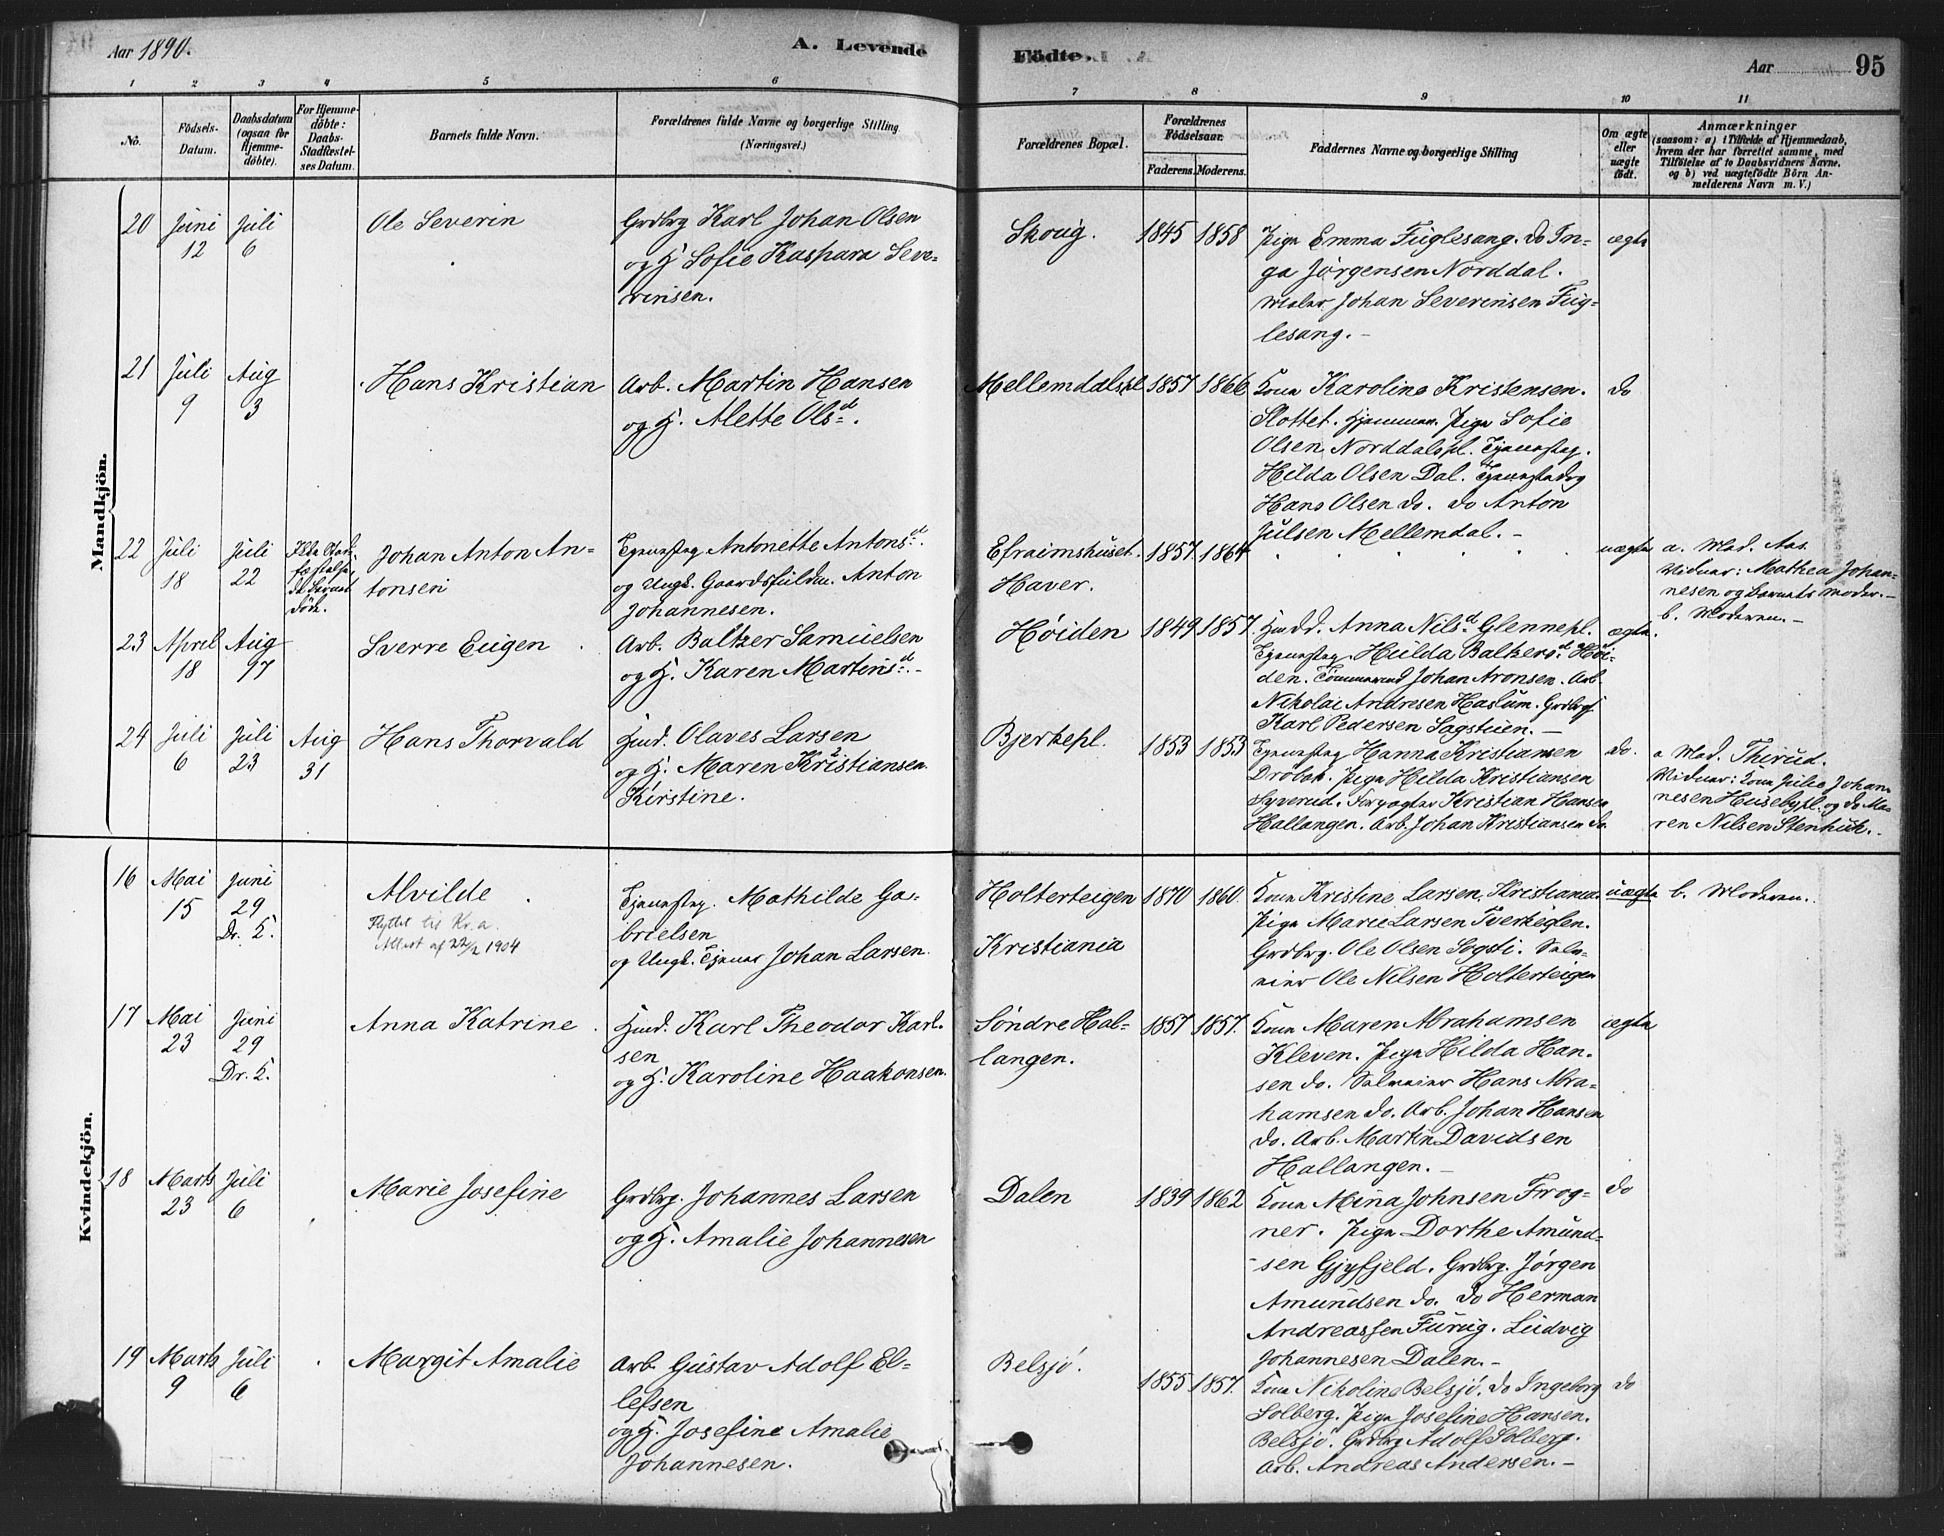 Aar 1890.
A. Levende
Födte.
Aar
95
1
2
3
4
5
6
7
8
9
10
11
No.
Födsels-
Datum.
Daabsdatum
(ogsaa for
Hjemme-
döbte).
For Hjemme-
döbte:
Daabs-
Stadfæstel-
ses Datum.
Barnets fulde Navn.
Forældrenes fulde Navne og borgerlige Stilling
(Næringsvei.)
Forældrenes Bopæl.
Forældrenes
Födselsaar.
Faderens.
Moderens.
Faddernes Navne og borgerlige Stilling
Om ægte
eller
uægte
födt.
Anmærkninger
(saasom: a) i Tilfælde af Hjemmedaab,
hvem der har forrettet samme, med
Tilföielse af to Daabsvidners Navne,
og b) ved uægtefödte Börn An-
melderens Navn m. V.)
Mandkjön.
20
Juni
12
Juli
6
Ole Severin
Grdbrg Karl Johan Olsen
og H. Sofie Kaspara Seve-
rinsen.
Skoug.
1845
1858
Pige Emma Fuglesang. do In-
ga Jørgensen Norddal.
Maler Johan Severinsen Fug-
lesang. -
ægte
21
Juli
9
Aug
3
Hans Kristian
Arb. Martin Hansen
og H. Alette Olsd.
Mellemdalspl
1857
1866
Kone Karoline Kristensen.
Slottet. Pige Sofie
Olsen Norddalspl. Tjenestpg.
Hilda Olsen Dal. Tjenestedrg
Hans Olsen do. do Anton
Julsen Mellemdal. -
do
22
Juli
18
Juli
22
Johan Anton An-
tonsen
Tjenestpg Antonette Antonsd.
og Ungk. Gaardsfuldm. Anton
Johannesen.
Efraimshuset.
Haver.
1857
1864
uægte
a. Mad. Aas.
Vidner: Mathea Johan-
nesen og Barnets Moder. -
b. Moderen. -
23
April
18
Aug
17
Sverre Eugen
Arb. Baltzer Samuelsen
og H. Karen Martinsd. -
Høiden
1849
1857.
Anna Nilsd. Glennepl.
Tjenestpg Hulda Baltzersd. Høi-
den. Tømmermd Johan Aronsen. Arb.
Nikolai Andresen Haslum. Grdbrgs
Karl Pedersen Sagstuen. -
ægte.
24
Juli
6
Juli
23
Aug
31
Hans Thorvald
Husd. Olaves Larsen
og H. Maren Kristiansen
Kirstine.
Bjerkepl.
1853
1853
Tjenestpg Hanna Kristiansen
Drøbak. Pige Hilda Kristiansen
Syverud. Forpagter Kristian Hansen
Hallangen. Arb. Johan Kristiansen do
do.
a Mad. Therud.
Vidner: Kone Julie Johan-
nesen Husebypl. og do Ma-
ren Nilsen Stenhuk. -
Kvindekjön.
16
Mai
15
Juni
29
Dr. K.
Alvilde
Flyttet til Kr.a.
Attest af 22/2 1904
Tjenestpg. Mathilde Ga-
brielsen
og Ungk. Tjener Johan Larsen.
Holterteigen
Kristiania
1870
1860
Kone Kristine Larsen, Kristiania.
Pige Marie Larsen Tverkeglen.
Grdbrg. Ole Olsen Sogsti. Sal-
meier Ole Nilsen Holterteigen
uægte
b. Moderen.
17
Mai
23
Juni
29
Dr. K.
Anna Katrine
Husd. Karl Theodor Karl-
sen
og H. Karoline Haakonsen.
Søndre Hal-
langen.
1857
1857.
Kone Maren Abrahamsen
Kleven. Pige Hilda Han-
sen do. Hans Abra-
hamsen do. Arb. Johan Hansen
do. Arb. Martin Davidsen
Hallangen. -
ægte
18
Marts
23
Juli
6
Marie Josefine
Grdbrg. Johannes Larsen
og H. Amalie Johannesen
Dalen
1839
1862
Kone Mina Johnsen Frog-
ner. Pige Dorthe Amund-
sen Gjyfjeld. Grdbrg. Jørgen
Amundsen do. do Herman
Andreassen Furug. Ludvig
Johannesen Dalen. -
do
19
Marts
9
Juli
6
Margit Amalie
Arb. Gustav Adolf El-
lefsen
og H. Josefine Amalie
Johannesen.
Belsjø.
1855
1857.
Kone Nikoline Belsjø. do Ingeborg
Solberg. Pige Josefine Hansen.
Belsjø. Grdbrg Adolf Solberg.
Arb. Andreas Andersen. -
do